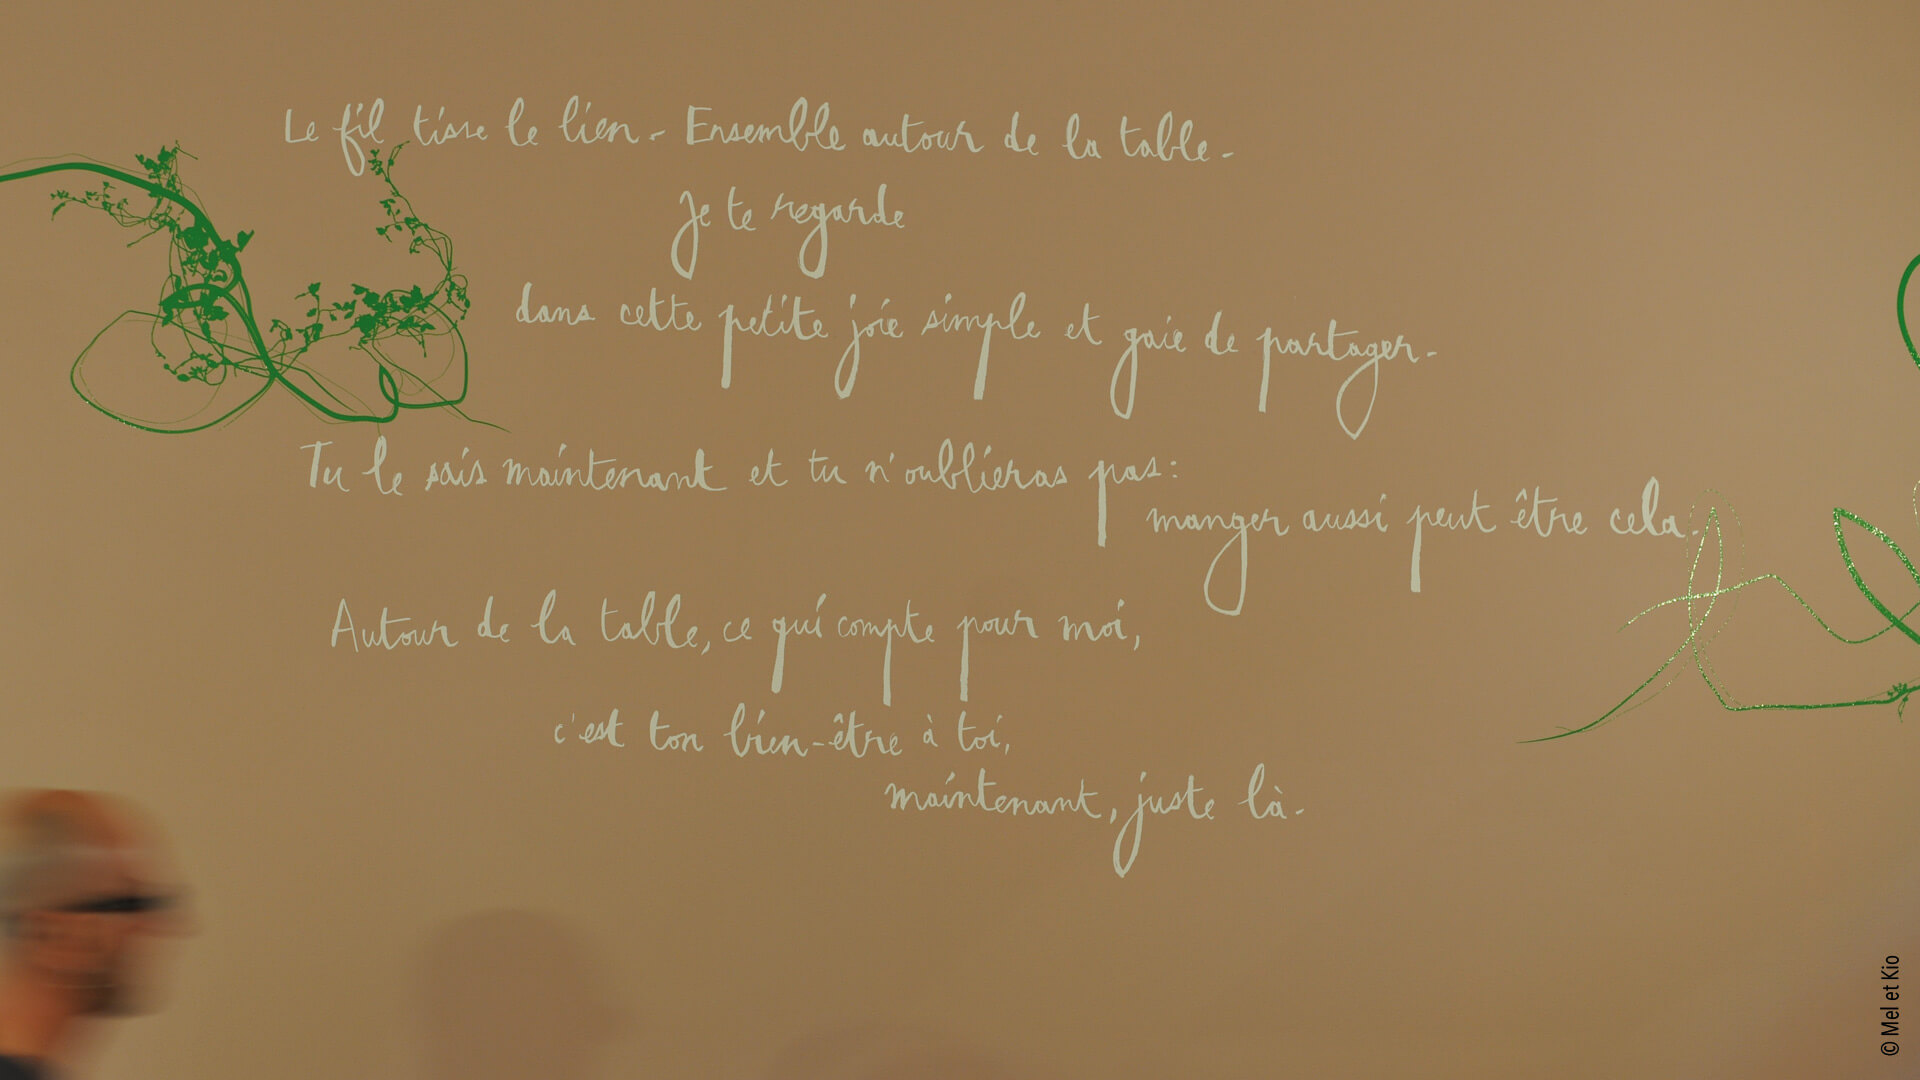 Le fil tisse le lien. Ensemble autour de la table.
Je te regarde
dans cette petite joie simple et gaie de partager.
Tu le sais maintenant et tu n'oublieras pas:
manger aussi peut être cela.
Autour de la table, ce qui compte pour moi,
c'est ton bien-être à toi,
maintenant, juste là.
© Mel et Kio